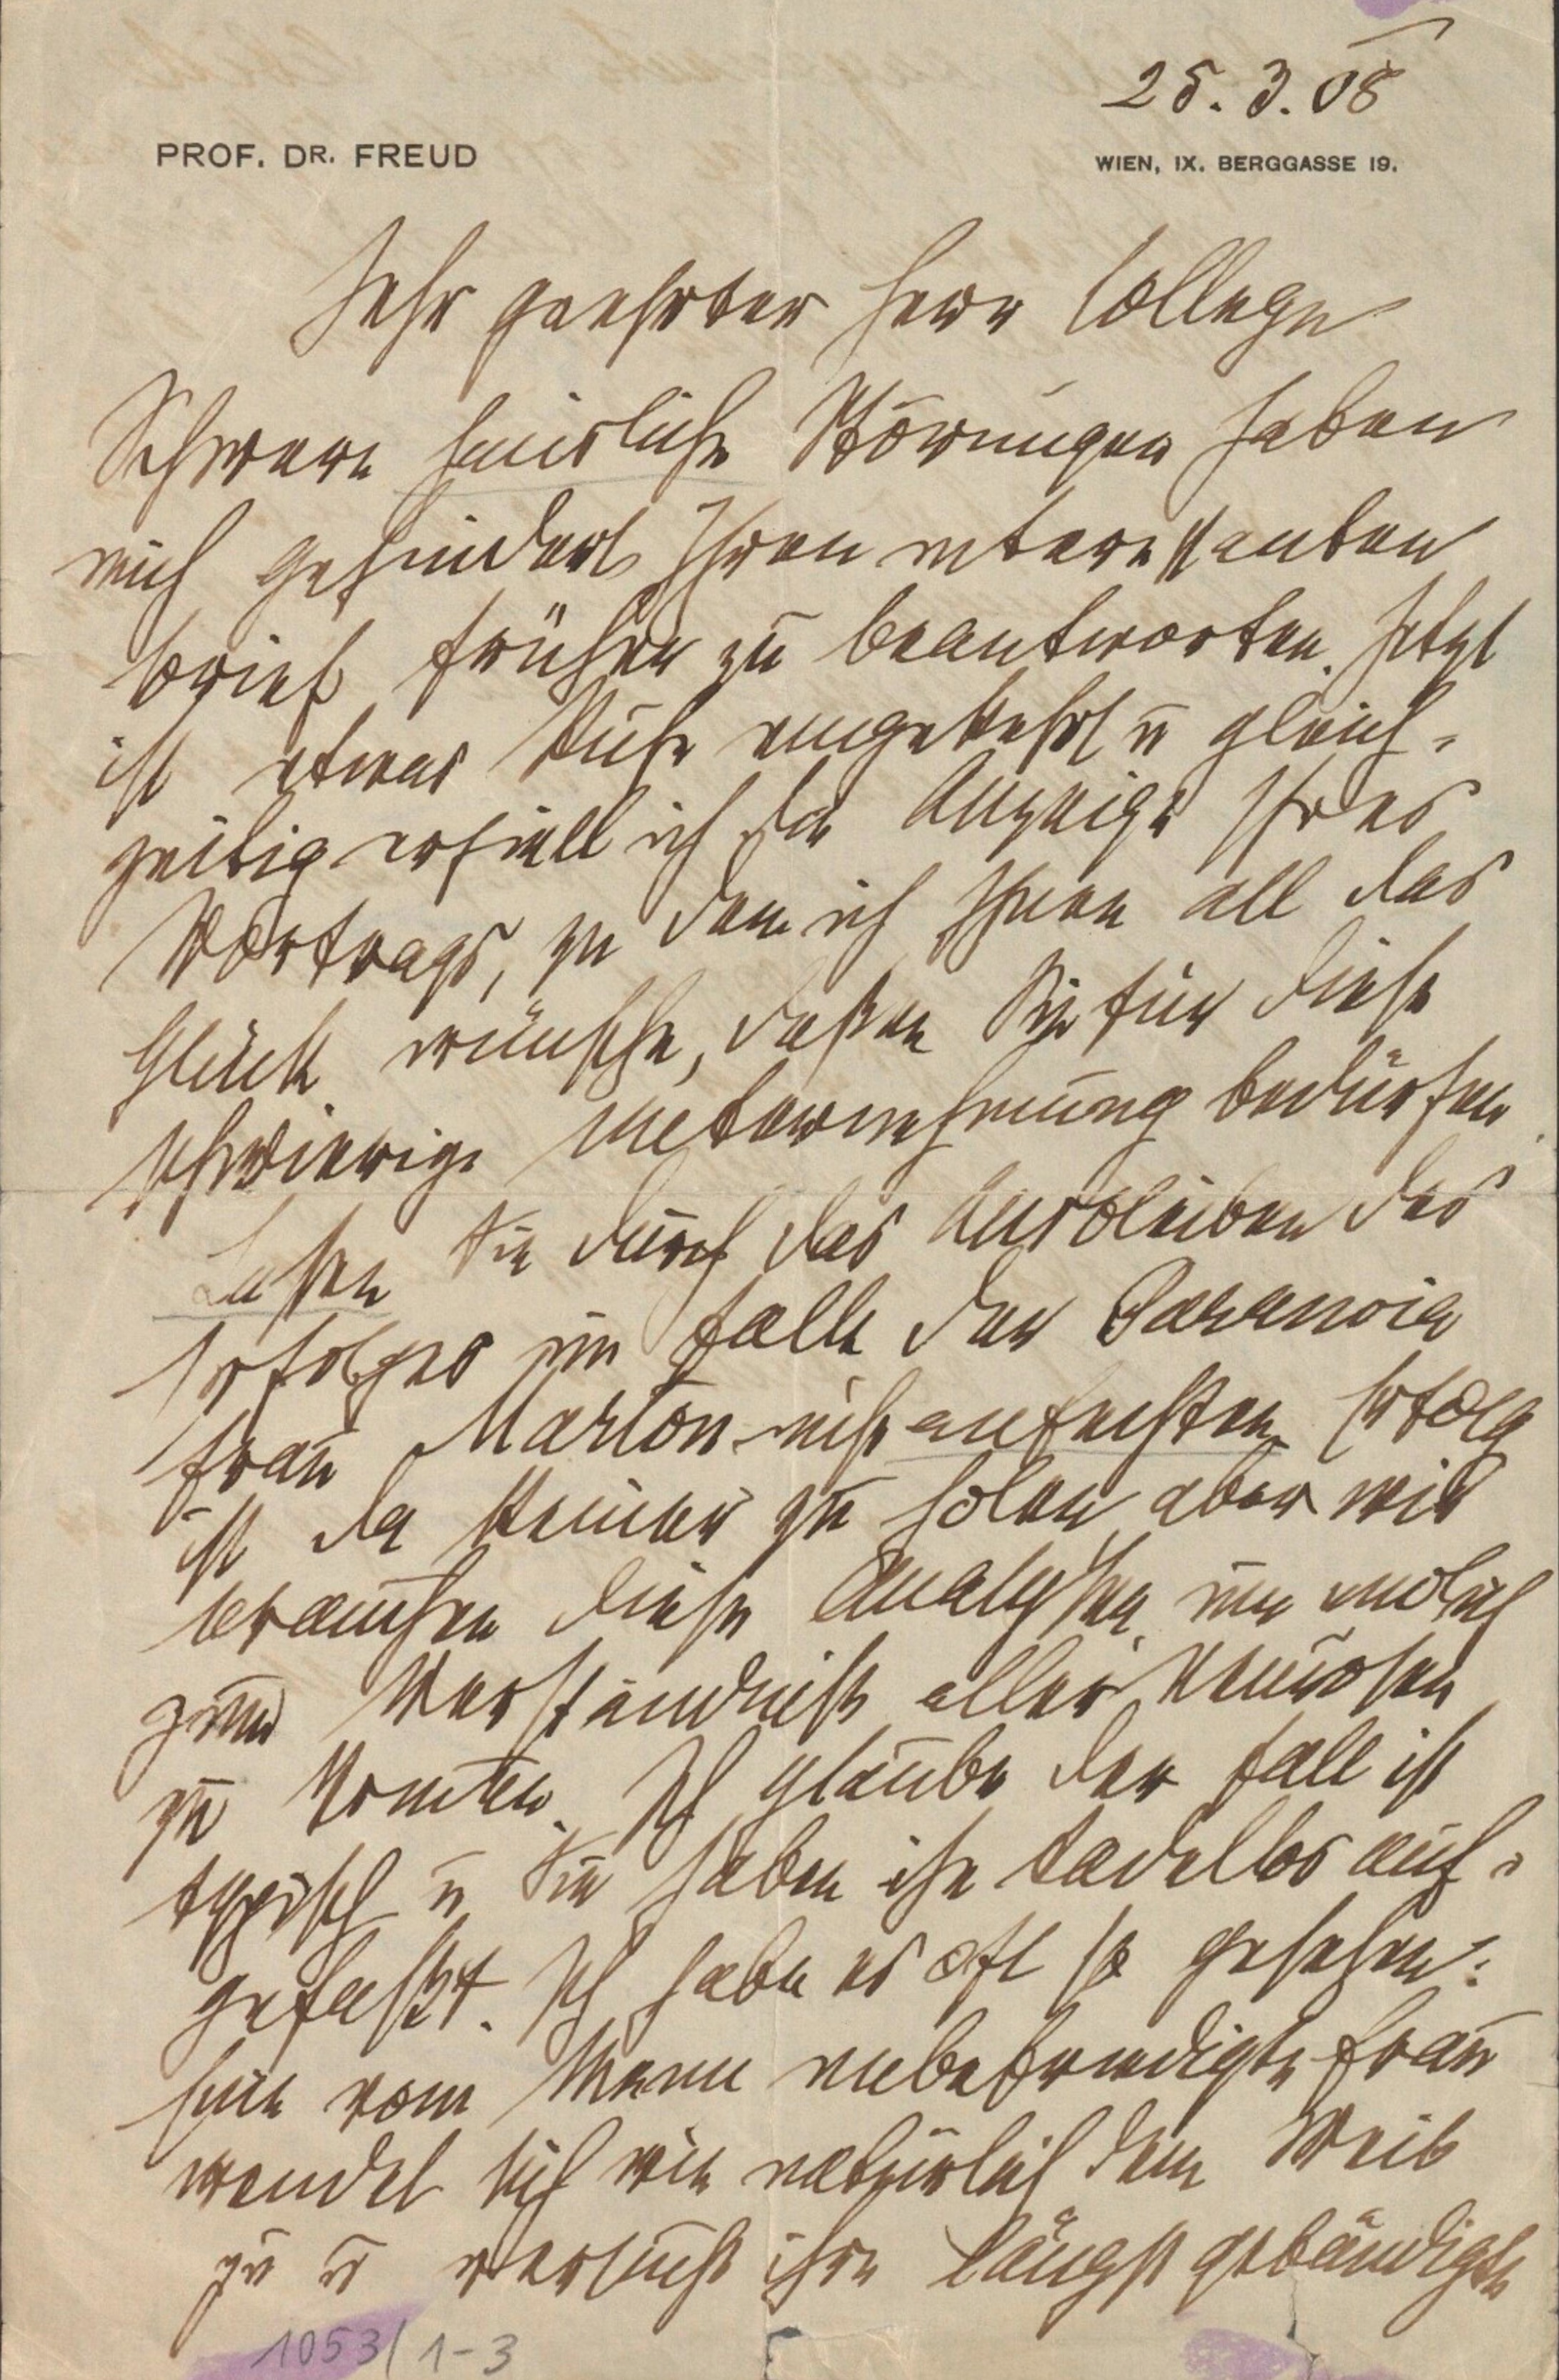 25.3.08
PROF. DR. FREUD
WIEN, IX. BERGGASSE 19.
Sehr geehrter Herr College
Schwere häusliche Störungen haben
mich gehindert Ihren interessanten
Brief früher zu beantworten. Jetzt
ist etwas Ruhe eingekehrt u gleich-
zeitig erhielt ich die Anzeige Ihres
Vortrags, zu dem ich Ihnen all das
Glück wünsche, dessen Sie für diese
schwierige Unternehmung bedürfen.
Lassen Sie durch das Ausbleiben des
Erfolges im Falle der Paranoia
Frau Marton nicht anfechten. Erfolg
ist da keiner zu holen, aber wir
brauchen diese Analysen, um endlich
zum Verständniß aller Neurosen
zu kommen. Ich glaube der Fall ist
typisch u Sie haben ihn tadellos auf-
gefaßt. Ich habe es oft so gesehen:
Eine vom Mann unbefriedigte Frau
wendet sich wie natürlich dem Weib
zu u versucht ihre längst gebändigte
1053/1-3